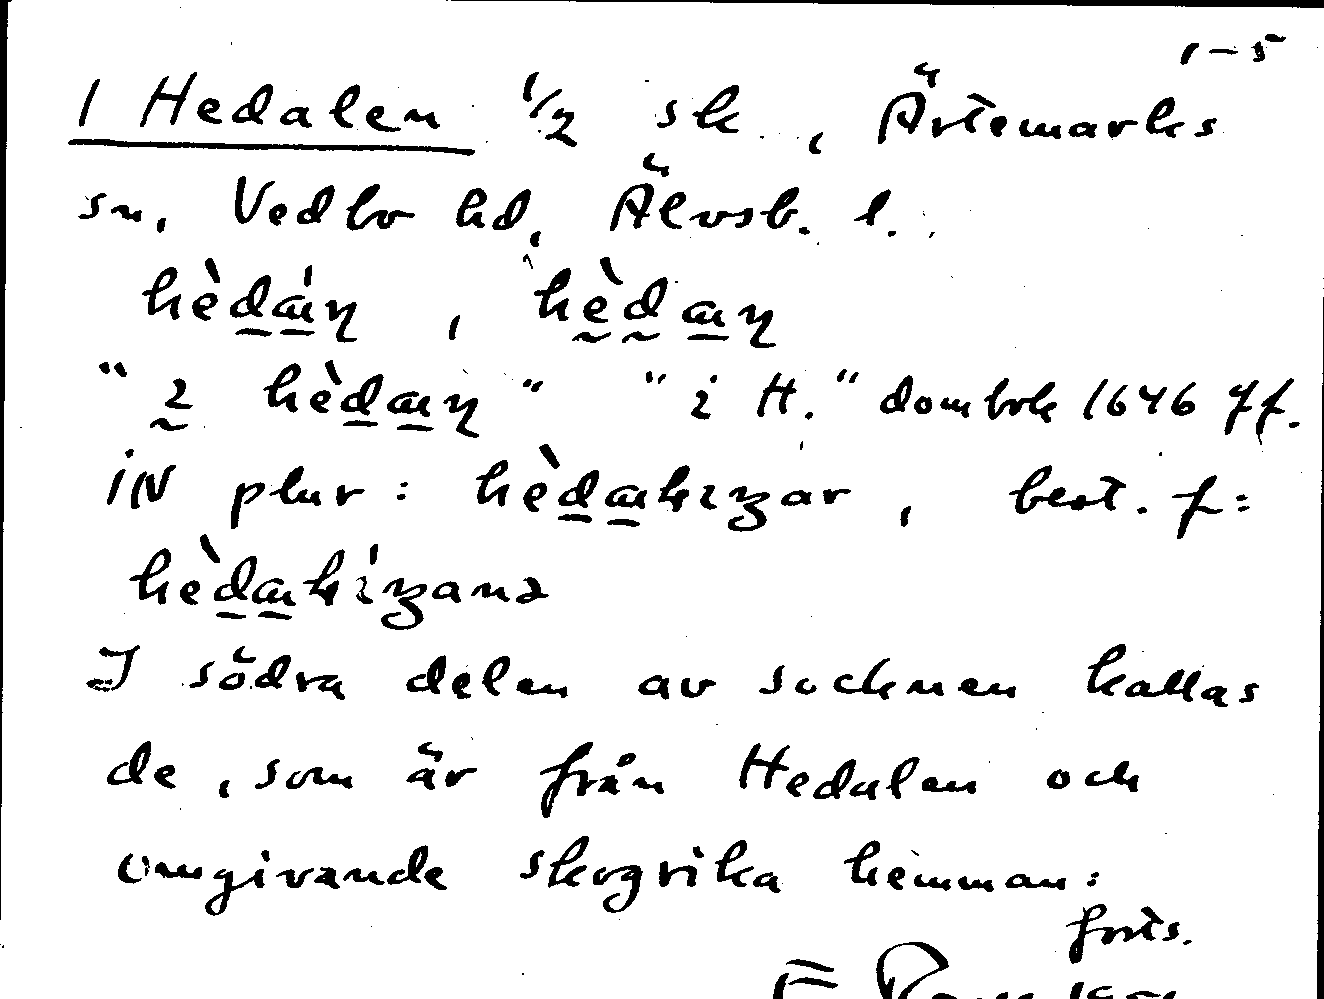 1–5
1 Hedalen 1/2 sk., Ärtemarks
sn, Vedbo hd, Älvsb. l.
hèdáɳ, hèdaɳ
"2 hèdaɳ" "i H." dombok 1646 ff.
iN plur: hèdakizar, best. f:
hèdakízana
I södra delen av socknen kallas
de, som är från Hedalen och
omgivande skogrika hemman:
forts.